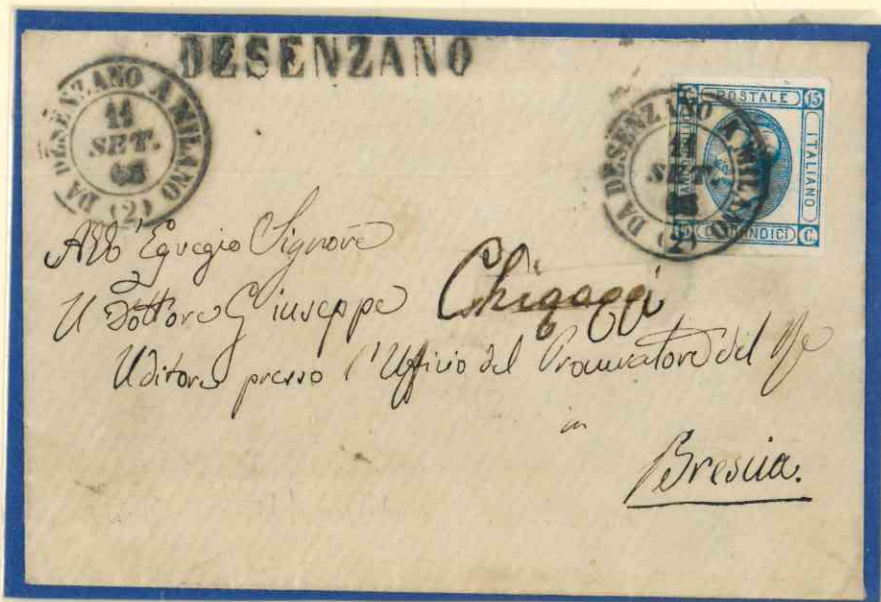 DESENZANO
DA DESENZANO A MILANO (2)
11
SET.
63
DA DESENZANO A MILANO (2)
11
SET.
63
C. POSTALE 15
ITALIANO
QUINDICI C.
All' Egregio Signore
Il Dottore Giuseppe
Uditore presso l'Ufficio del Procuratore del Re
in
Brescia.